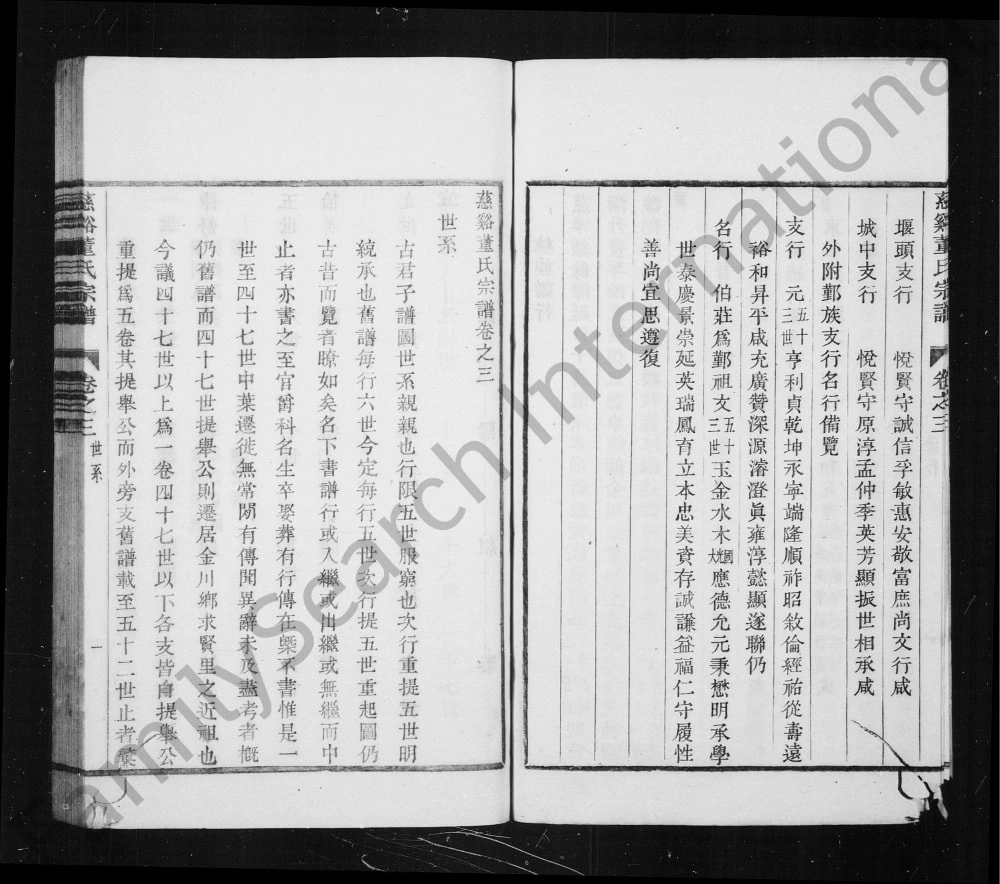 慈谿董氏宗譜 卷之三
堰頭支行 悅賢守誠信孚敏惠安敬富庶尚文行咸
城中支行 悅賢守原淳孟仲季英芳顯振世相承咸
外附鄞族支行名行備覽
支行 元五十三世亨利貞乾坤永寧端隆順祚昭敘倫經祐從壽遠
裕和昇平咸充廣贊深源濬澄眞雍淳懿顯遂聯仍
名行 伯莊爲鄞祖文五十三世玉金水木應德允元秉懋明承學
世泰慶景崇延英瑞鳳育立本忠美資存誠謙益福仁守履性
善尚宜思遵復
慈谿董氏宗譜卷之三
世系
古君子譜圖世系親親也行限五世服窮也次行重提五世明
統承也舊譜每行六世今定每行五世次行提五世重起圖仍
古昔而覽者暸如矣名下書譜行或入繼或出繼或無繼而中
止者亦書之至官爵科名生卒娶葬有行傳在槩不書惟是一
世至四十七世中葉遷徙無常閒有傳聞異辭未及盡考者槪
仍舊譜而四十七世提舉公則遷居金川鄉求賢里之近祖也
今議四十七世以上爲一卷四十七世以下各支皆自提舉公
重提爲五卷其提舉公而外旁支舊譜載至五十二世止者彙
慈谿董氏宗譜 卷之三 世系 一
FamilySearch International